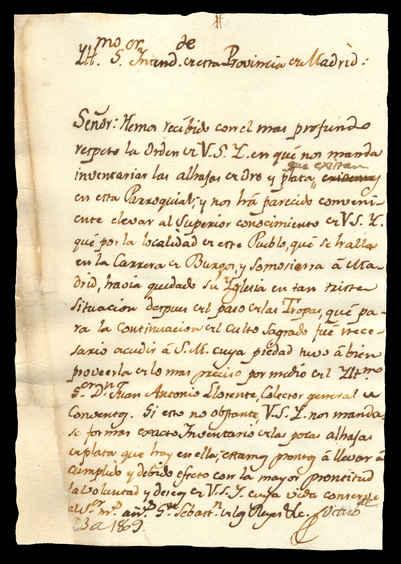 Yll.mo S.or Intend.te de esta Provincia de Madrid:
Señor: Hemos recibido con el mas profundo
respeto la Orden de V.S.Y. en que nos manda
inventariar las alhajas de Oro y plata, que existan
en esta Parroquial; y nos há parecido conveni-
ente elevar al Superior conocimiento de V.S.Y.
qué por la localidad de este Pueblo, qué se halla
en la Carrera de Burgos, y Somosierra á Ma-
drid, havia quedado su Yglesia en tan triste
situacion despues del paso de las Tropas, qué pa-
ra la continuacion del Culto Sagrado fué nece-
sario acudir á S.M. cuya piedad tuvo á bien
proveerla de lo mas preciso por medio del Yll.mo
S.or D.n Juan Antonio Llorente, Colector general de
Conventos. Si esto no obstante, V.S.Y. nos manda,
se forme exacto Inventario de las pocas alhajas
de plata que hay en ella, estamos prontos á llevar á
cumplido y debido efecto con la mayor prontitud
la voluntad y deseos de V.S.Y. cuya vida conserve
m.s añ.s S.n Sebast.n de los Reyes &c. Octubre
23 de 1809.